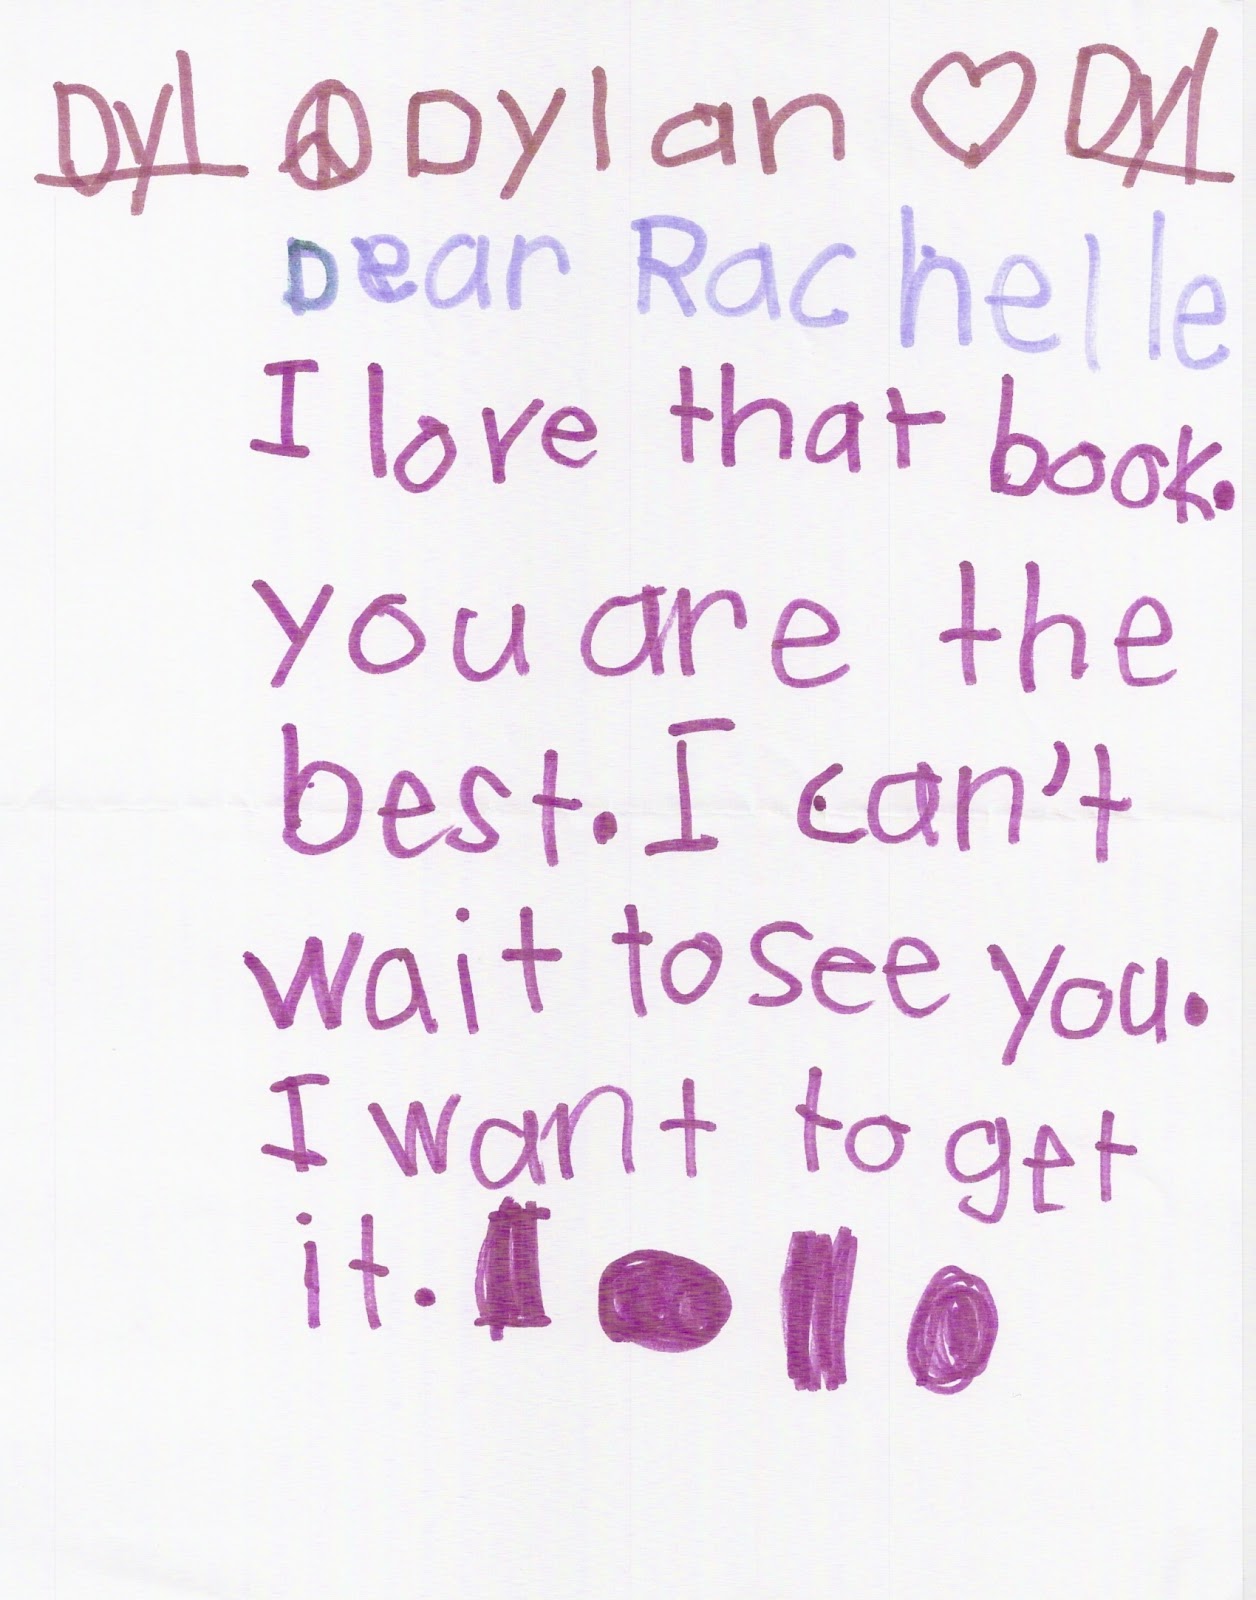 Dyl Dylan Dyl
Dear Rachelle
I love that book.
you are the
best. I can't
wait to see you.
I want to get
it.